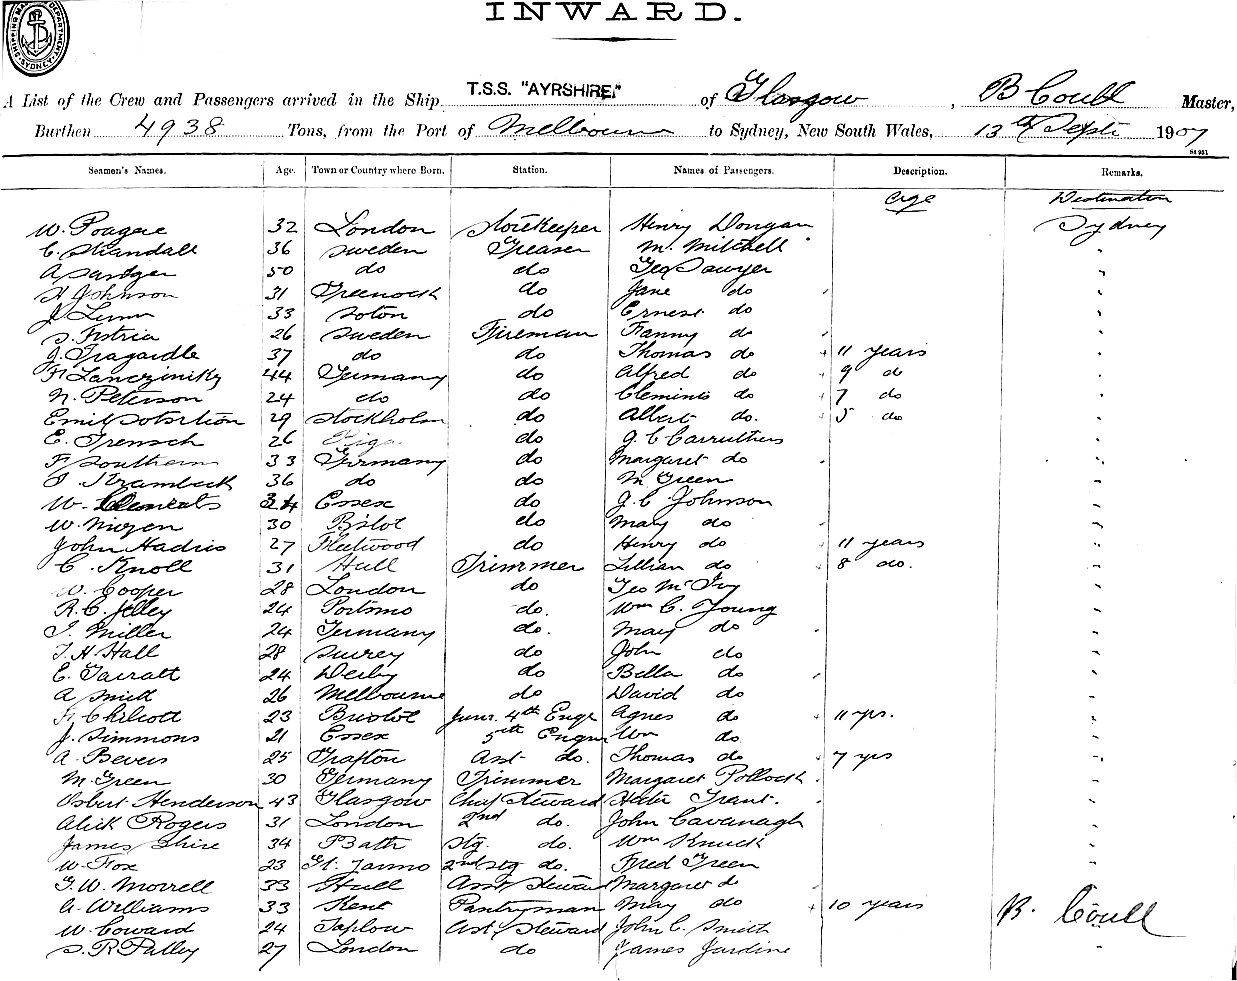 INWARD.
SHIPPING MASTER'S DEPARTMENT SYDNEY
A List of the Crew and Passengers arrived in the Ship T.S.S. "AYRSHIRE," of Glasgow, B Coull Master,
Burthen 4938 Tons, from the Port of Melbourne to Sydney, New South Wales, 13th Septr 1907
Seamen's Names. Age. Town or Country where Born. Station. Names of Passengers. Description. Remarks.
Age Destination
W. 32 London Storekeeper Henry Dongan Sydney
C. 36 Sweden Greaser M. Mitchell "
A 50 do do Geo Sawyer "
H Johnson 31 Greenock do Jane do "
J. Lunn 33 Soton do Ernest do "
26 Sweden Fireman Fanny do "
J. 37 do do Thomas do 11 years "
44 Germany do Alfred do 9 do "
N. Peterson 24 do do Clemint do 7 do "
Emil 29 Stockholm do Albert do. 5 do "
E. Trensch 26 Riga do J. C Carruthers "
F Southern 33 Germany do Margaret do "
Krambeck 36 do do M Green "
W. Clements 34 Essex do J. C Johnson "
W. 30 Bistol do Mary do "
John Hadris 27 Fleetwood do Henry do 11 years "
C. Knoll 31 Hull Trimmer Lillian do 8 do. "
W. Cooper 28 London do Geo "
R. C. Jelley 24 Portsmo do. Wm C. Young "
J. Miller 24 Germany do. May do "
T. H. Hall 28 Surrey do John do "
E. Tarratt 24 Derby do Bella do "
A Smith 26 Melbourne do David do "
F. Chilcott 23 Bristol Junr. 4th Engr Agnes do 11 yrs. "
J. Simmons 21 Essex 5th Engnr Wm do "
A. Bevers 25 Grafton Asst do. Thomas do 7 yrs "
M. Green 30 Germany Trimmer Margaret Pollock "
Osbert Henderson 43 Glasgow Chief Steward Kate Grant. "
Alick Rogers 31 London 2nd do. John Cavanagh "
James Shire 34 Bath Stg. do. Wm "
W. Fox 23 2nd Stg do. Fred Green "
G. W. Morrell 33 Hull Asst Steward Margaret do "
A. Williams 33 Kent Pantryman May do 10 years B. Coull
W Coward 24 Taplow Ast. Steward John C. Smith
S. R. Palley 27 London do James Jardine "